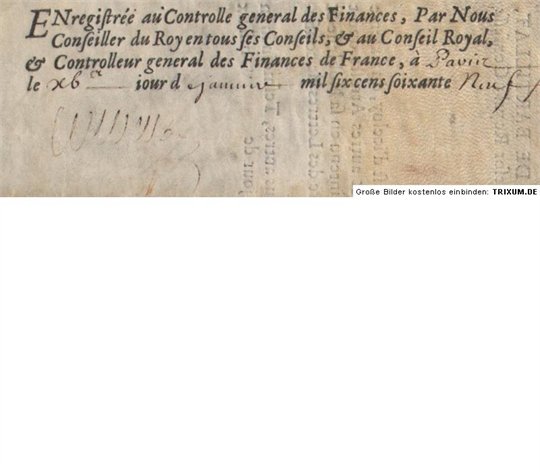 ENregistrée au Controlle general des Finances, Par Nous
Conseiller du Roy en tous ses Conseils, & au Conseil Royal,
& Controlleur general des Finances de France, à Paris
le jour d Janvier mil six cens soixante Neuf
Große Bilder kostenlos einbinden: TRIXUM.DE